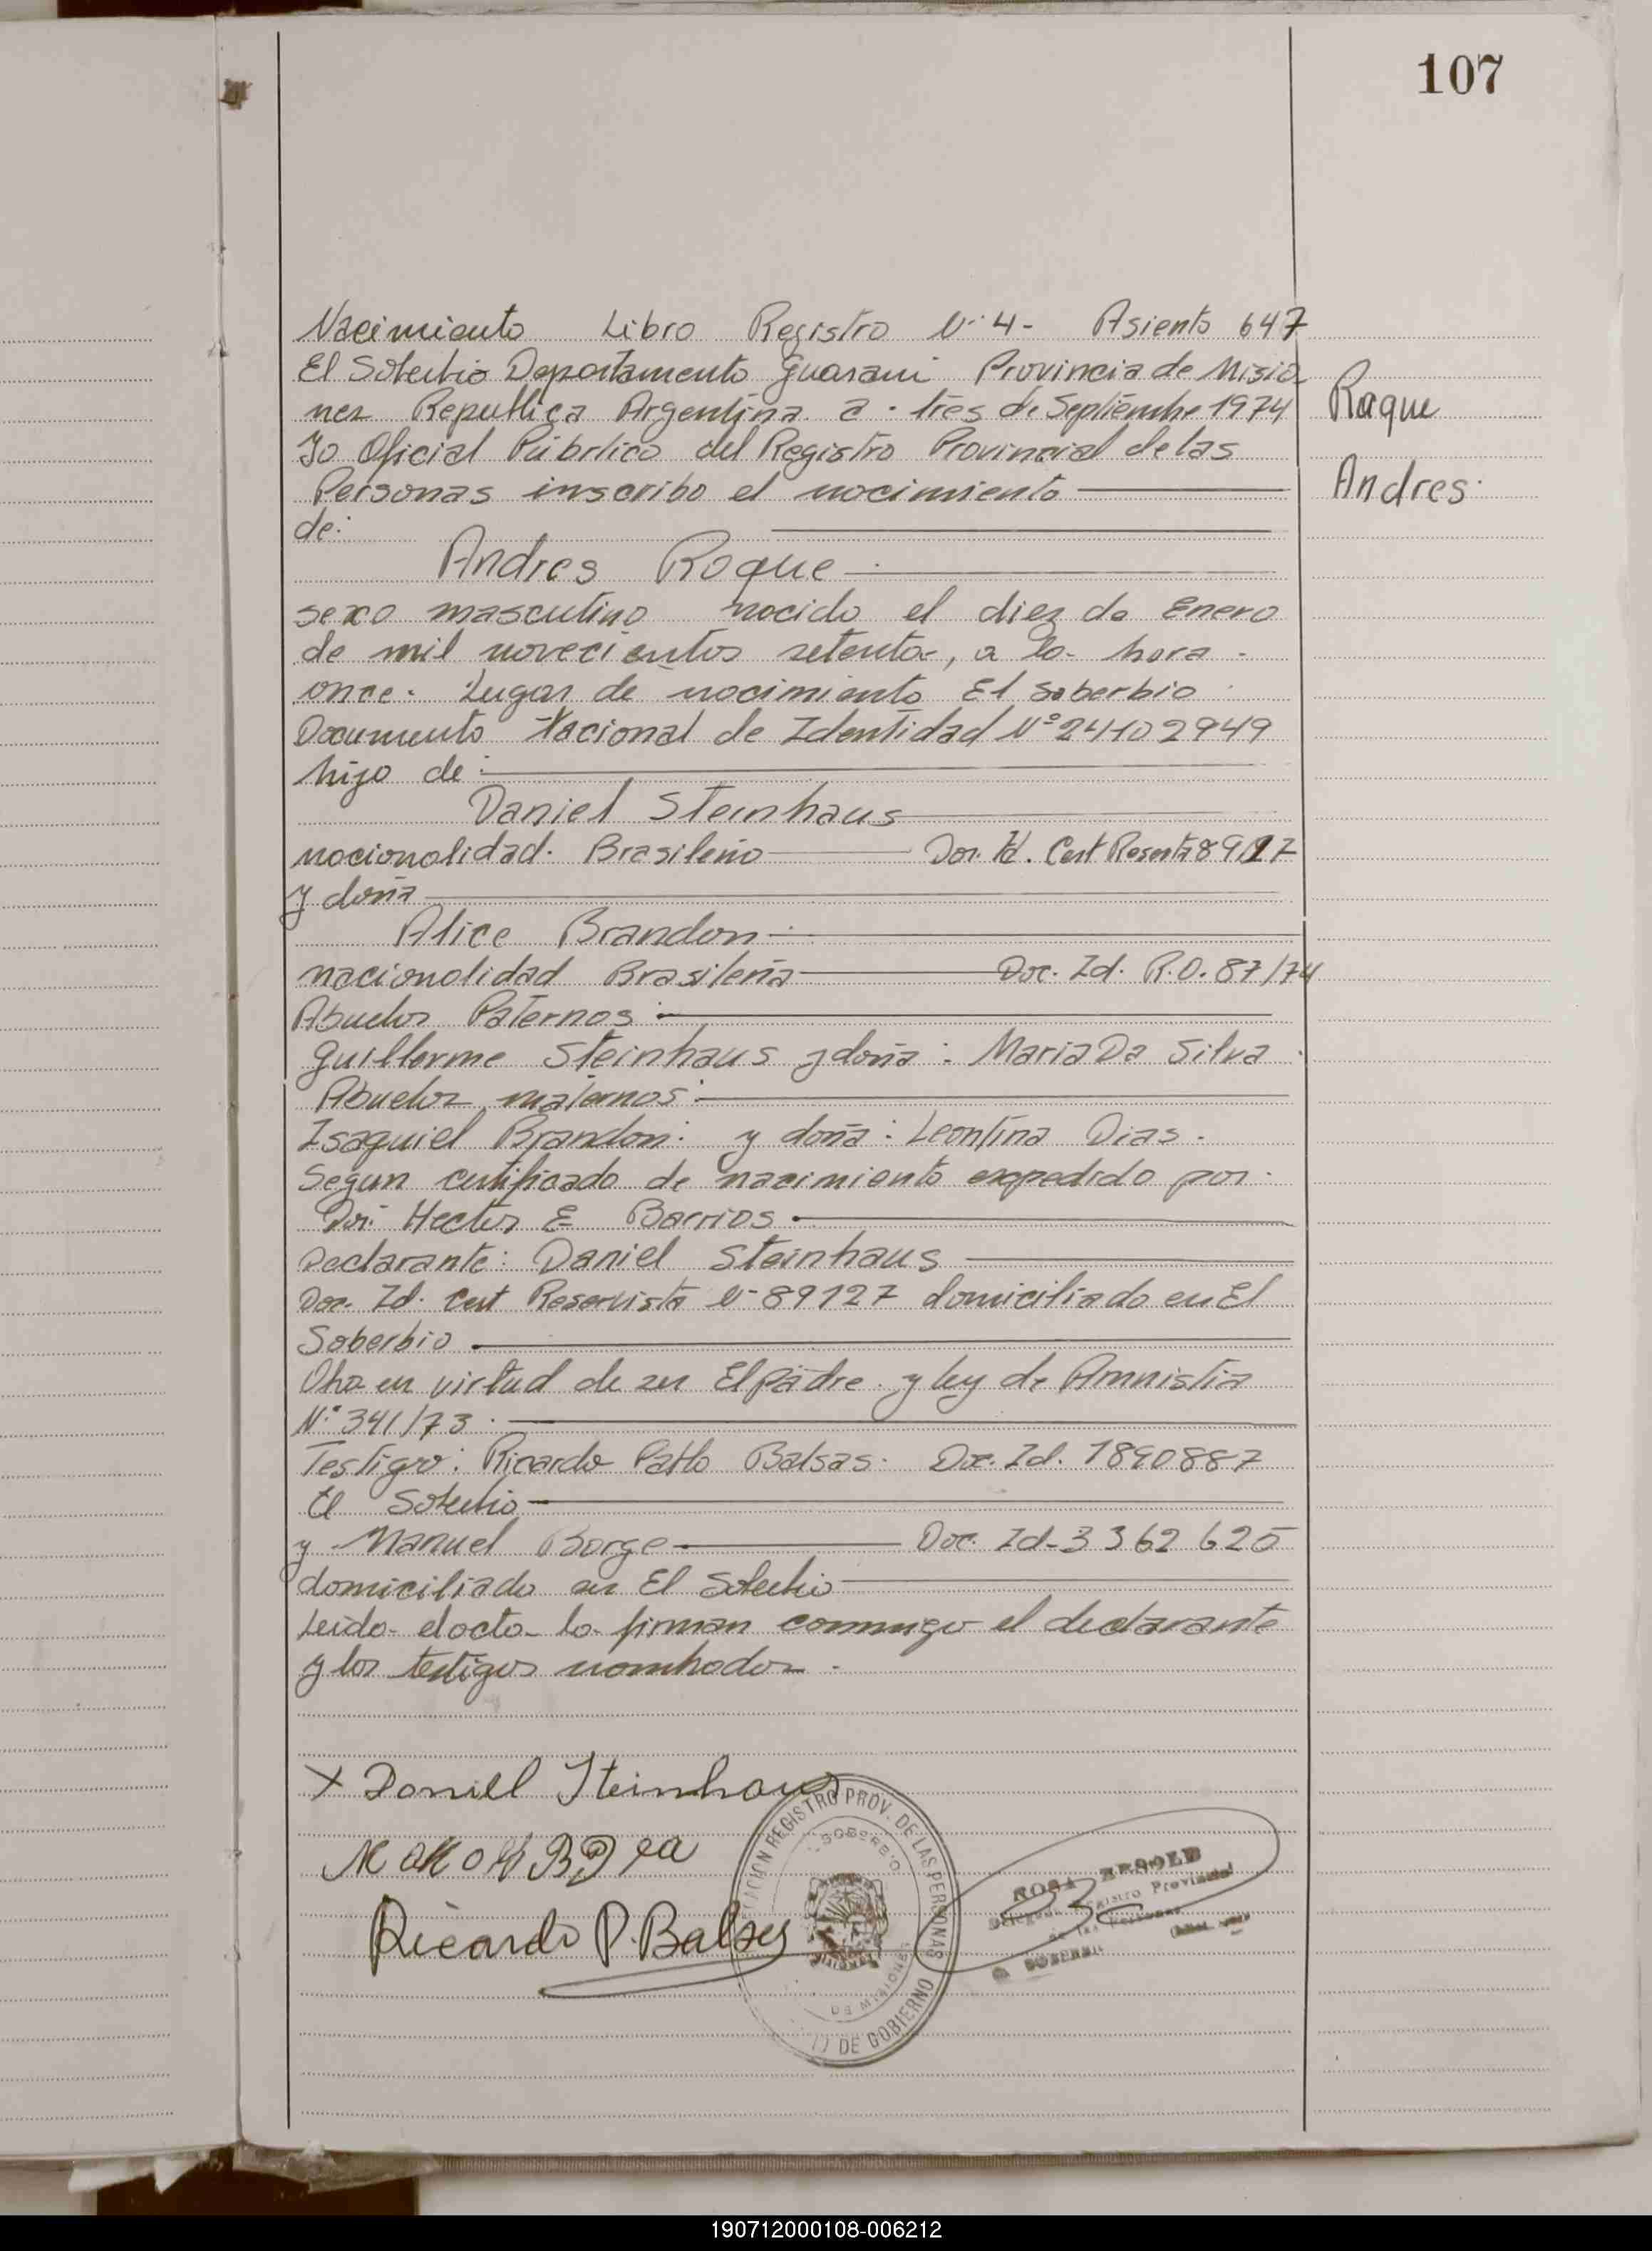 107
Nacimiento Libro Registro Nº 4- Asiento 647
El Soberbio Departamento Guarani Provincia de Misio
nes Republica Argentina a tres de Septiembre 1974
Yo Oficial Público del Registro Provincial de las
Personas inscribo el nacimiento
de:
Andres Roque
sexo masculino nacido el diez de Enero
de mil novecientos setenta, a la hora
once. Lugar de nacimiento El Soberbio
Documento Nacional de Identidad Nº 24102949
hijo de:
Daniel Steinhaus
nacionalidad. Brasileño Doc. Id. Cert Reserta 89127
y doña
Alice Brandon
nacionalidad Brasileña Doc. Id. R.O. 87/74
Abuelos Paternos:
Guillerme Steinhaus y doña: Maria Da Silva
Abuelos maternos:
Isaquiel Brandon: y doña: Leontina Dias.
Segun certificado de nacimiento expedido por
Dor. Hector E Barrios
Declarante: Daniel Steinhaus
Doc. Id. Cert Reservista Nº 89127 domiciliado en El
Soberbio
Obra en virtud de ser El padre y ley de Amnistia
Nº 341/73.
Testigo: Ricardo Pablo Balsas. Doc. Id. 1890887
El Soberbio
y Manuel Borge Doc. Id-3362625
domiciliado en El Soberbio
Leido el acto lo firman conmigo el declarante
y los testigos nombrados
Roque
Andres
X Daniel Steinhaus
Ricardo P. Balsas
REGISTRO PROV. DE LAS PERSONAS
SOBERBIO
DE GOBIERNO
ROSA
Registro Provincial
de las Personas
SOBERBIO
190712000108-006212